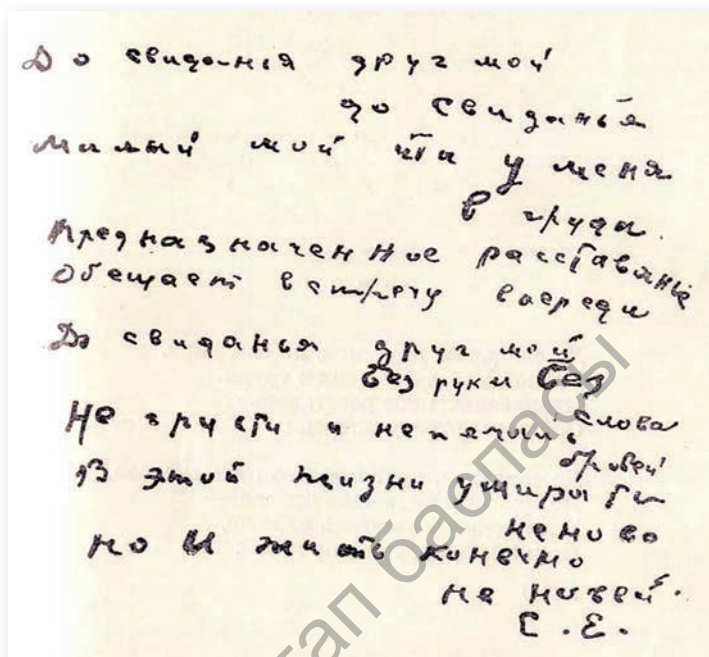 До свиданья друг мой
до свиданья
Милый мой ты у меня
в груди.
Предназначенное расставанье
Обещает встречу впереди
До свиданья друг мой
без руки без
слова
Не грусти и не печаль
бровей
В этой жизни умирать
не ново
но и жить конечно
не новей.
С. Е.
баспасы